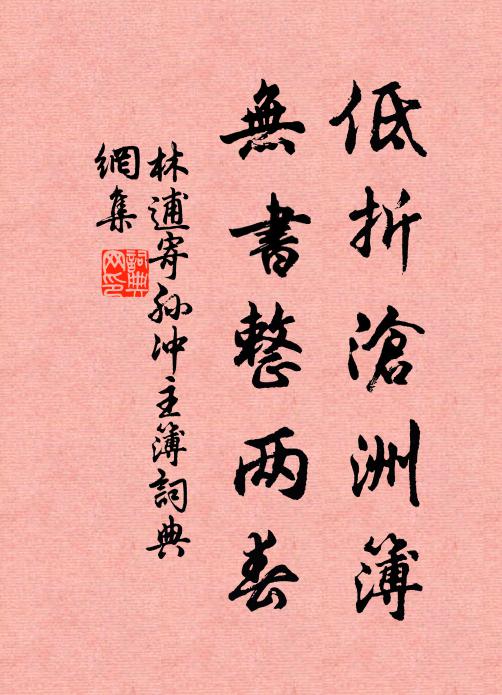 低折滄洲簿
無書整两春
林逋寄孙冲主簿詞典
網集
詞典
网印